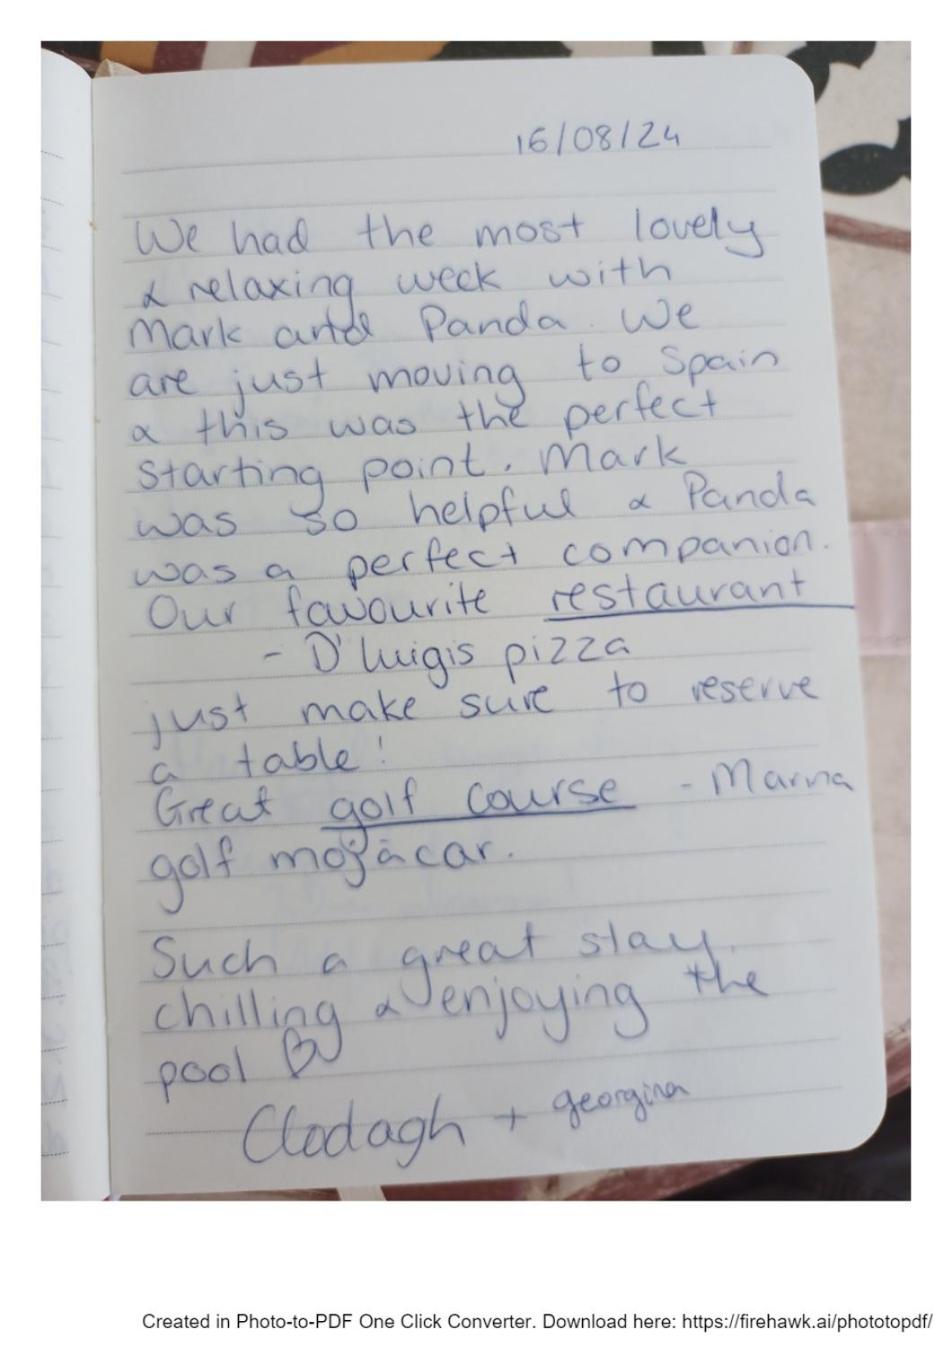 16/08/24
We had the most lovely
& relaxing week with
Mark and Panda. We
are just moving to Spain
& this was the perfect
starting point. Mark
was so helpful & Panda
was a perfect companion.
Our favourite restaurant
- D'Luigis pizza
just make sure to reserve
a table!
Great golf course - Marina
golf mojácar.
Such a great stay
chilling & enjoying the
pool
Clodagh + georgina
Created in Photo-to-PDF One Click Converter. Download here: https://firehawk.ai/phototopdf/